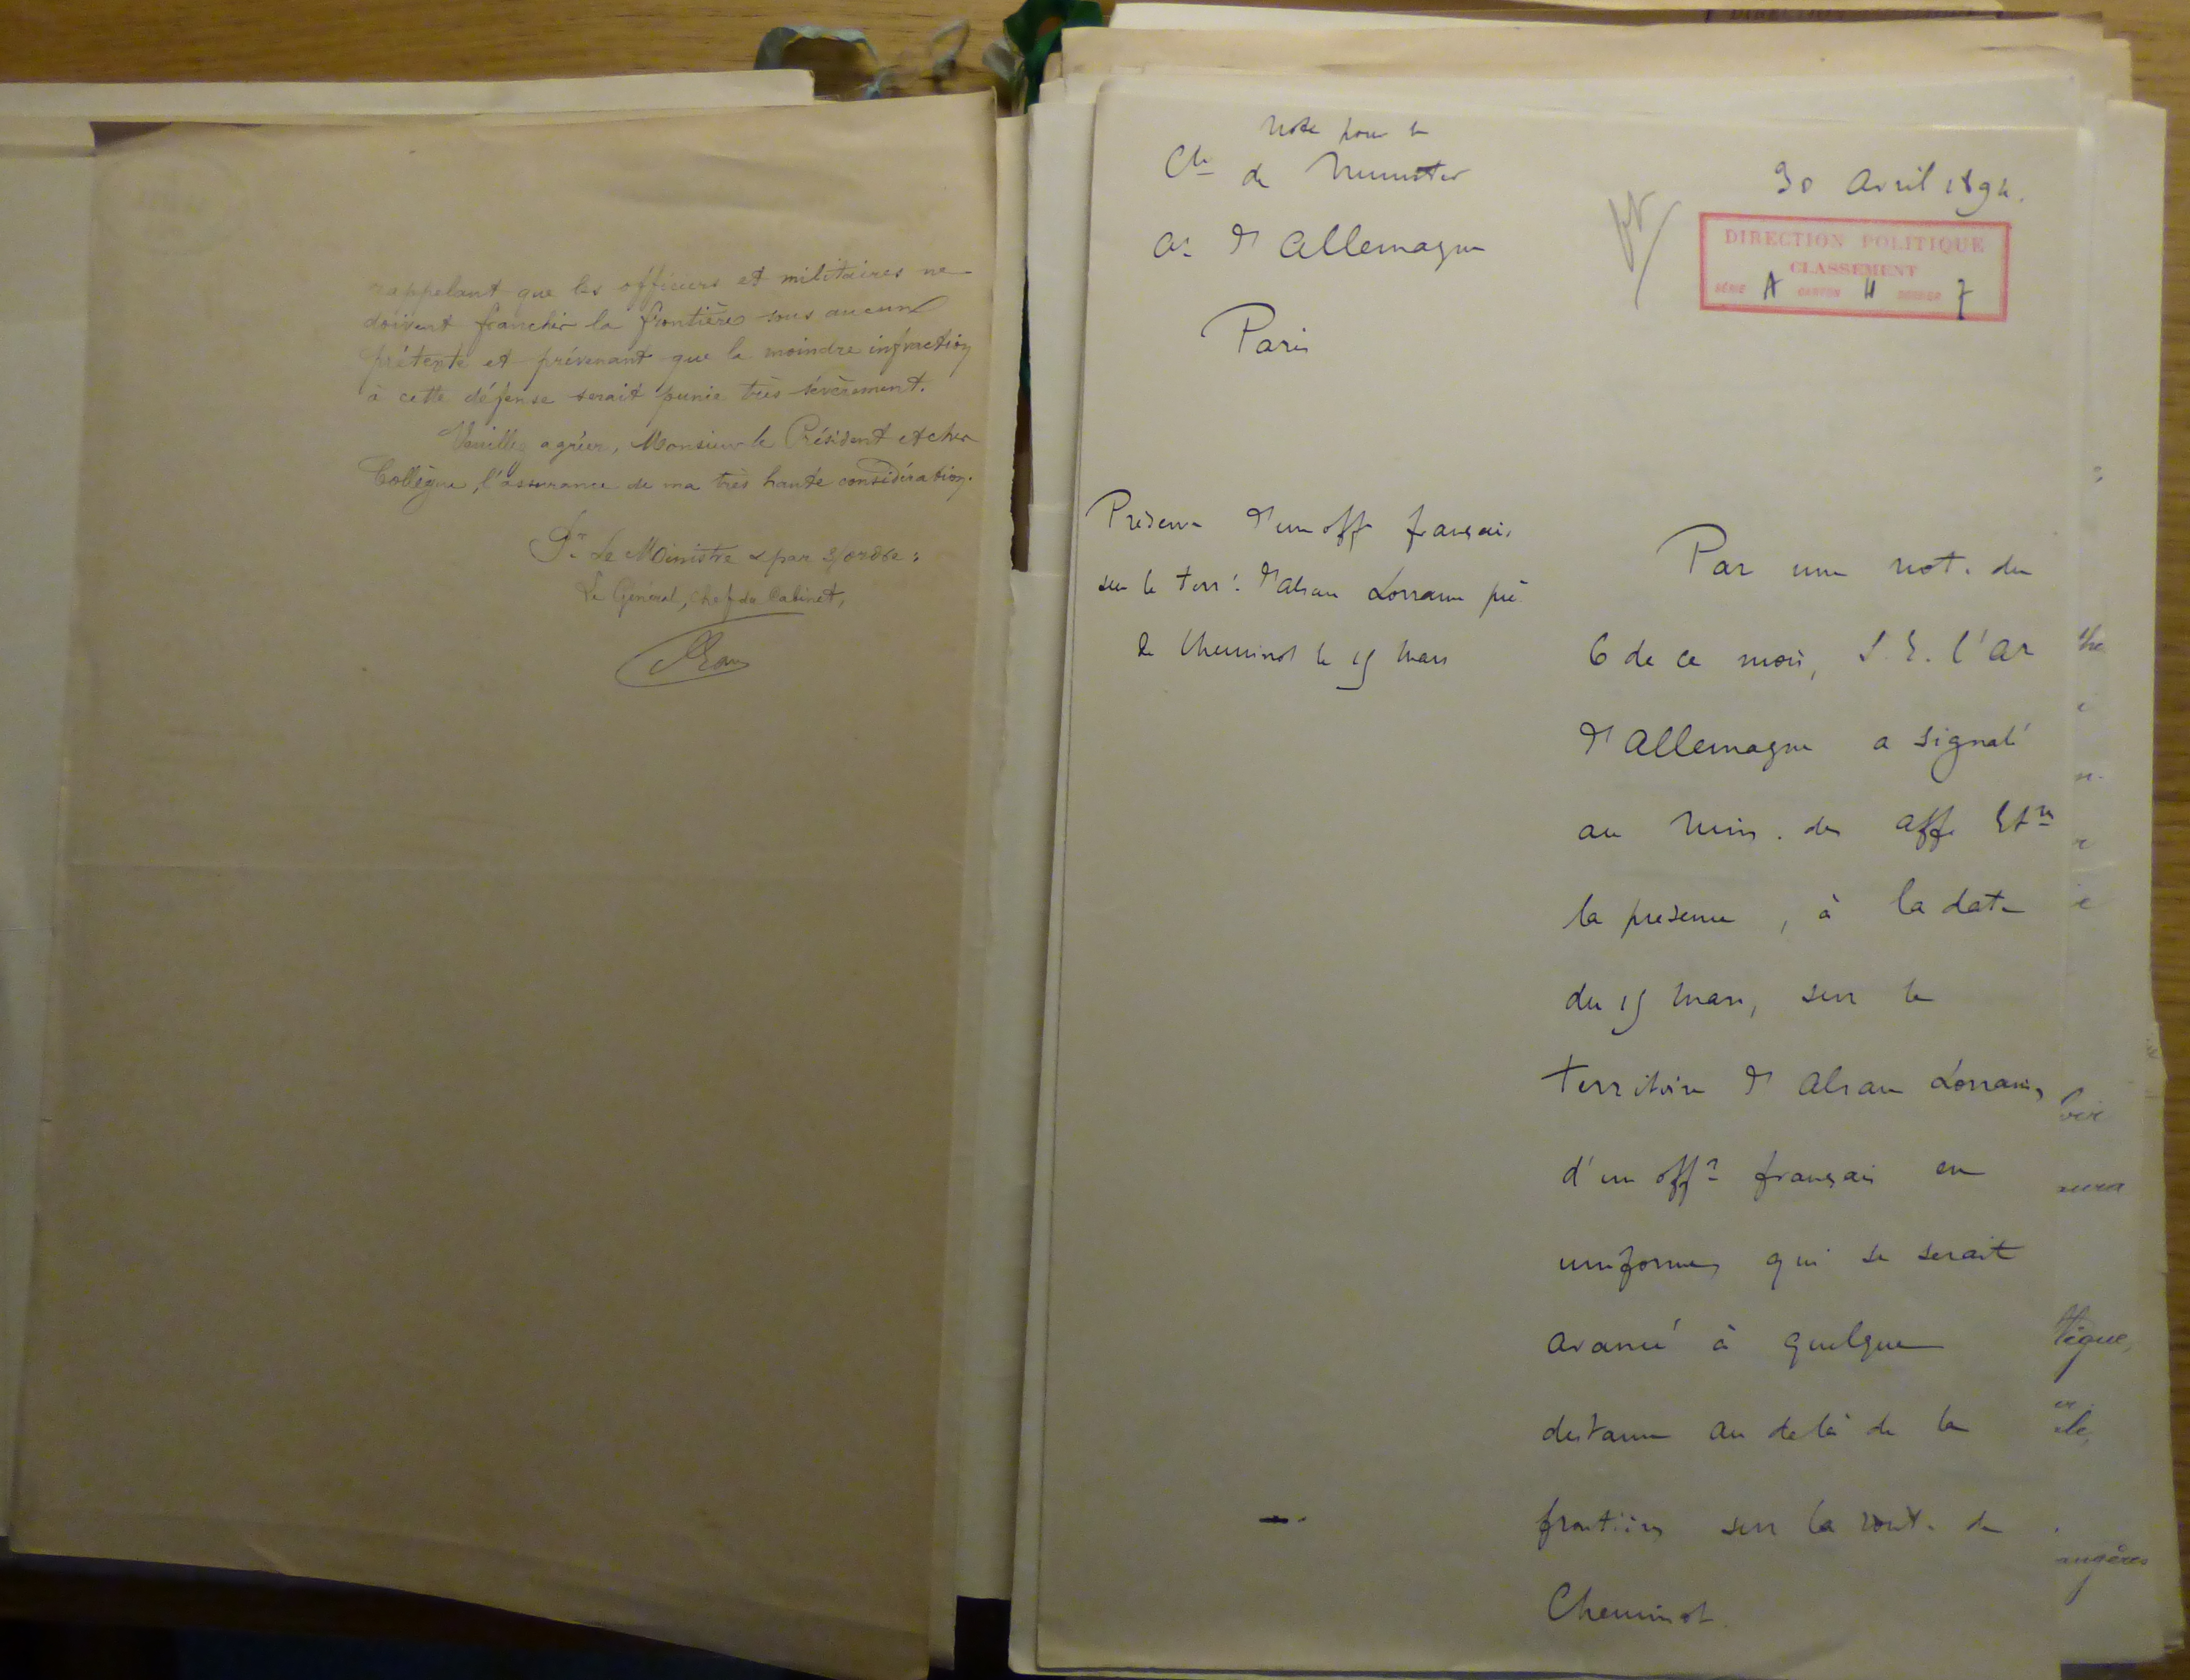 rappelant que les officiers et militaires ne
doivent franchir la frontière sous aucun
prétexte et prévenant que la moindre infraction
à cette défense serait punie très sévèrement.
Veuillez agréer, Monsieur le Président et cher
Collègue, l'assurance de ma très haute considération.
Pr. Le Ministre & par s/ordre:
Le Général, Chef du Cabinet,
Note pour le
Cte de Munster
Ar d'Allemagne
Paris
30 Avril 1894.
DIRECTION POLITIQUE
CLASSEMENT
SÉRIE A CARTON 11 DOSSIER 7
Présence d'un offr français
sur le terr. d'Alsace Lorraine près
de Cheminot le 15 Mars
Par une note du
6 de ce mois, S. E. l'Ar
d'Allemagne a signalé
au Min. des Aff. Etres
la présence, à la date
du 15 Mars, sur le
territoire d'Alsace Lorraine,
d'un offr français en
uniforme, qui se serait
avancé à quelque
distance au delà de la
frontière, sur la route de
Cheminot.
tègue,
angères